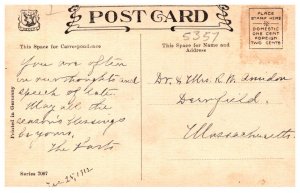 POST CARD
PLACE
STAMP HERE
DOMESTIC
ONE CENT
FOREIGN
TWO CENTS
5357
This Space for Correspondence
This Space for Name and
Address
You are often
in our thoughts and
speech of later
May all the
season's blessings
be yours.
The
Dec. 25, 1912
Dr. & Mrs. R. W.
Deerfield.
Massachusetts.
Printed in Germany
Series 7067